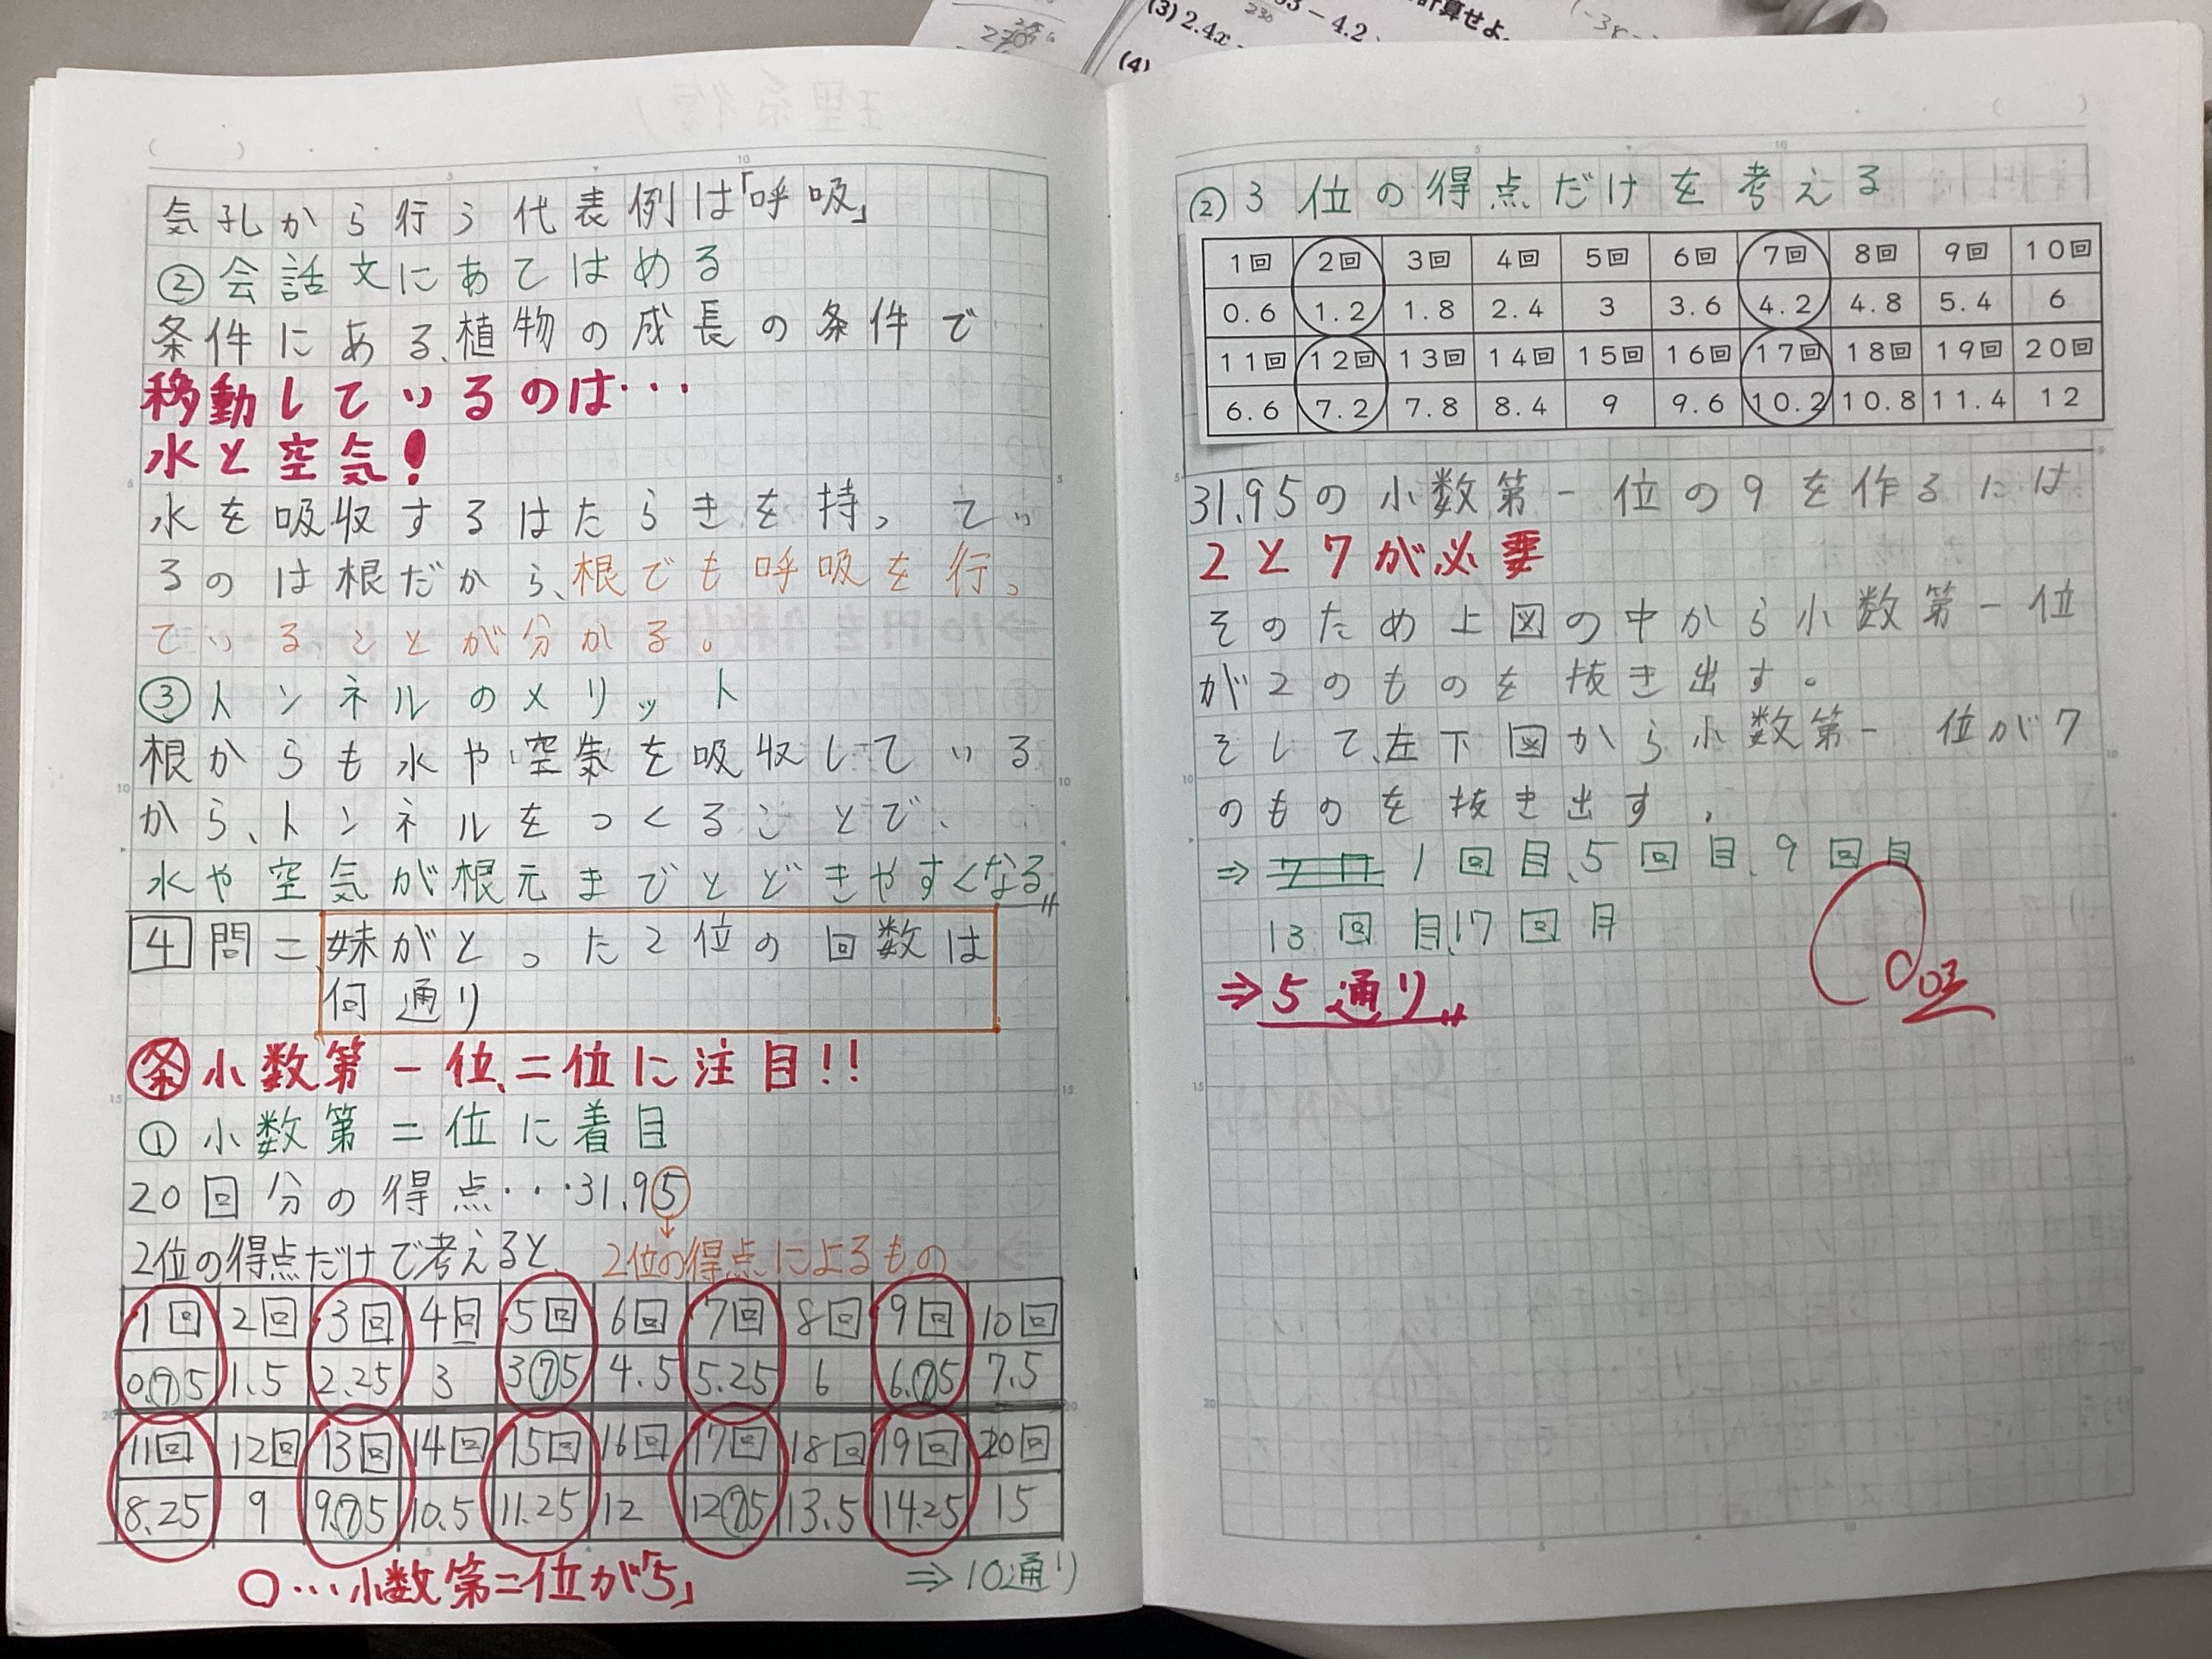 (3) 2.4x -
(4)
- 4.2
計算せよ.
230
気孔から行う代表例は「呼吸」
②会話文にあてはめる
条件にある、植物の成長の条件で
移動しているのは・・・
水と空気!
水を吸収するはたらきを持ってい
るのは根だから、根でも呼吸を行っ
ていることが分かる。
③トンネルのメリット
根からも水や空気を吸収している
から、トンネルをつくることで、
水や空気が根元までとどきやすくなる
4 問=妹がとった2位の回数は
何通り
条 小数第一位、二位に注目!!
①小数第二位に着目
20回分の得点・・・31.95
2位の得点だけで考えると、 2位の得点によるもの
1回 2回 3回 4回 5回 6回 7回 8回 9回 10回
0.75 1.5 2.25 3 3.75 4.5 5.25 6 6.75 7.5
11回 12回 13回 14回 15回 16回 17回 18回 19回 20回
8.25 9 9.75 10.5 11.25 12 12.75 13.5 14.25 15
○・・・小数第二位が「5」 ⇒10通り
②3位の得点だけを考える
1回 2回 3回 4回 5回 6回 7回 8回 9回 10回
0.6 1.2 1.8 2.4 3 3.6 4.2 4.8 5.4 6
11回 12回 13回 14回 15回 16回 17回 18回 19回 20回
6.6 7.2 7.8 8.4 9 9.6 10.2 10.8 11.4 12
31.95の小数第一位の9を作るには
2と7が必要
そのため上図の中から小数第一位
が2のものを抜き出す。
そして、左下図から小数第一位が7
のものを抜き出す、
⇒ 1回目、5回目、9回目
13回目、17回目
⇒5通り